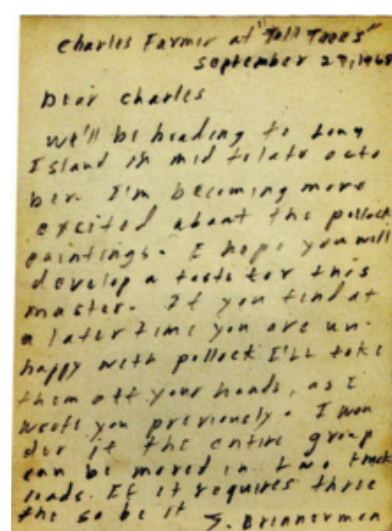 Charles Farmer at "Tall Trees"
September 27, 1968
Dear Charles
We'll be heading to Long
Island in mid to late octo
ber. I'm becoming more
excited about the pollock
paintings. I hope you will
develop a taste for this
master. If you find at
a later time you are un-
happy with pollock I'll take
them off your hands, as I
wrote you previously. I won
der if the entire group
can be moved in two truck
loads. If it requires three
the so be it S. Brinnerman